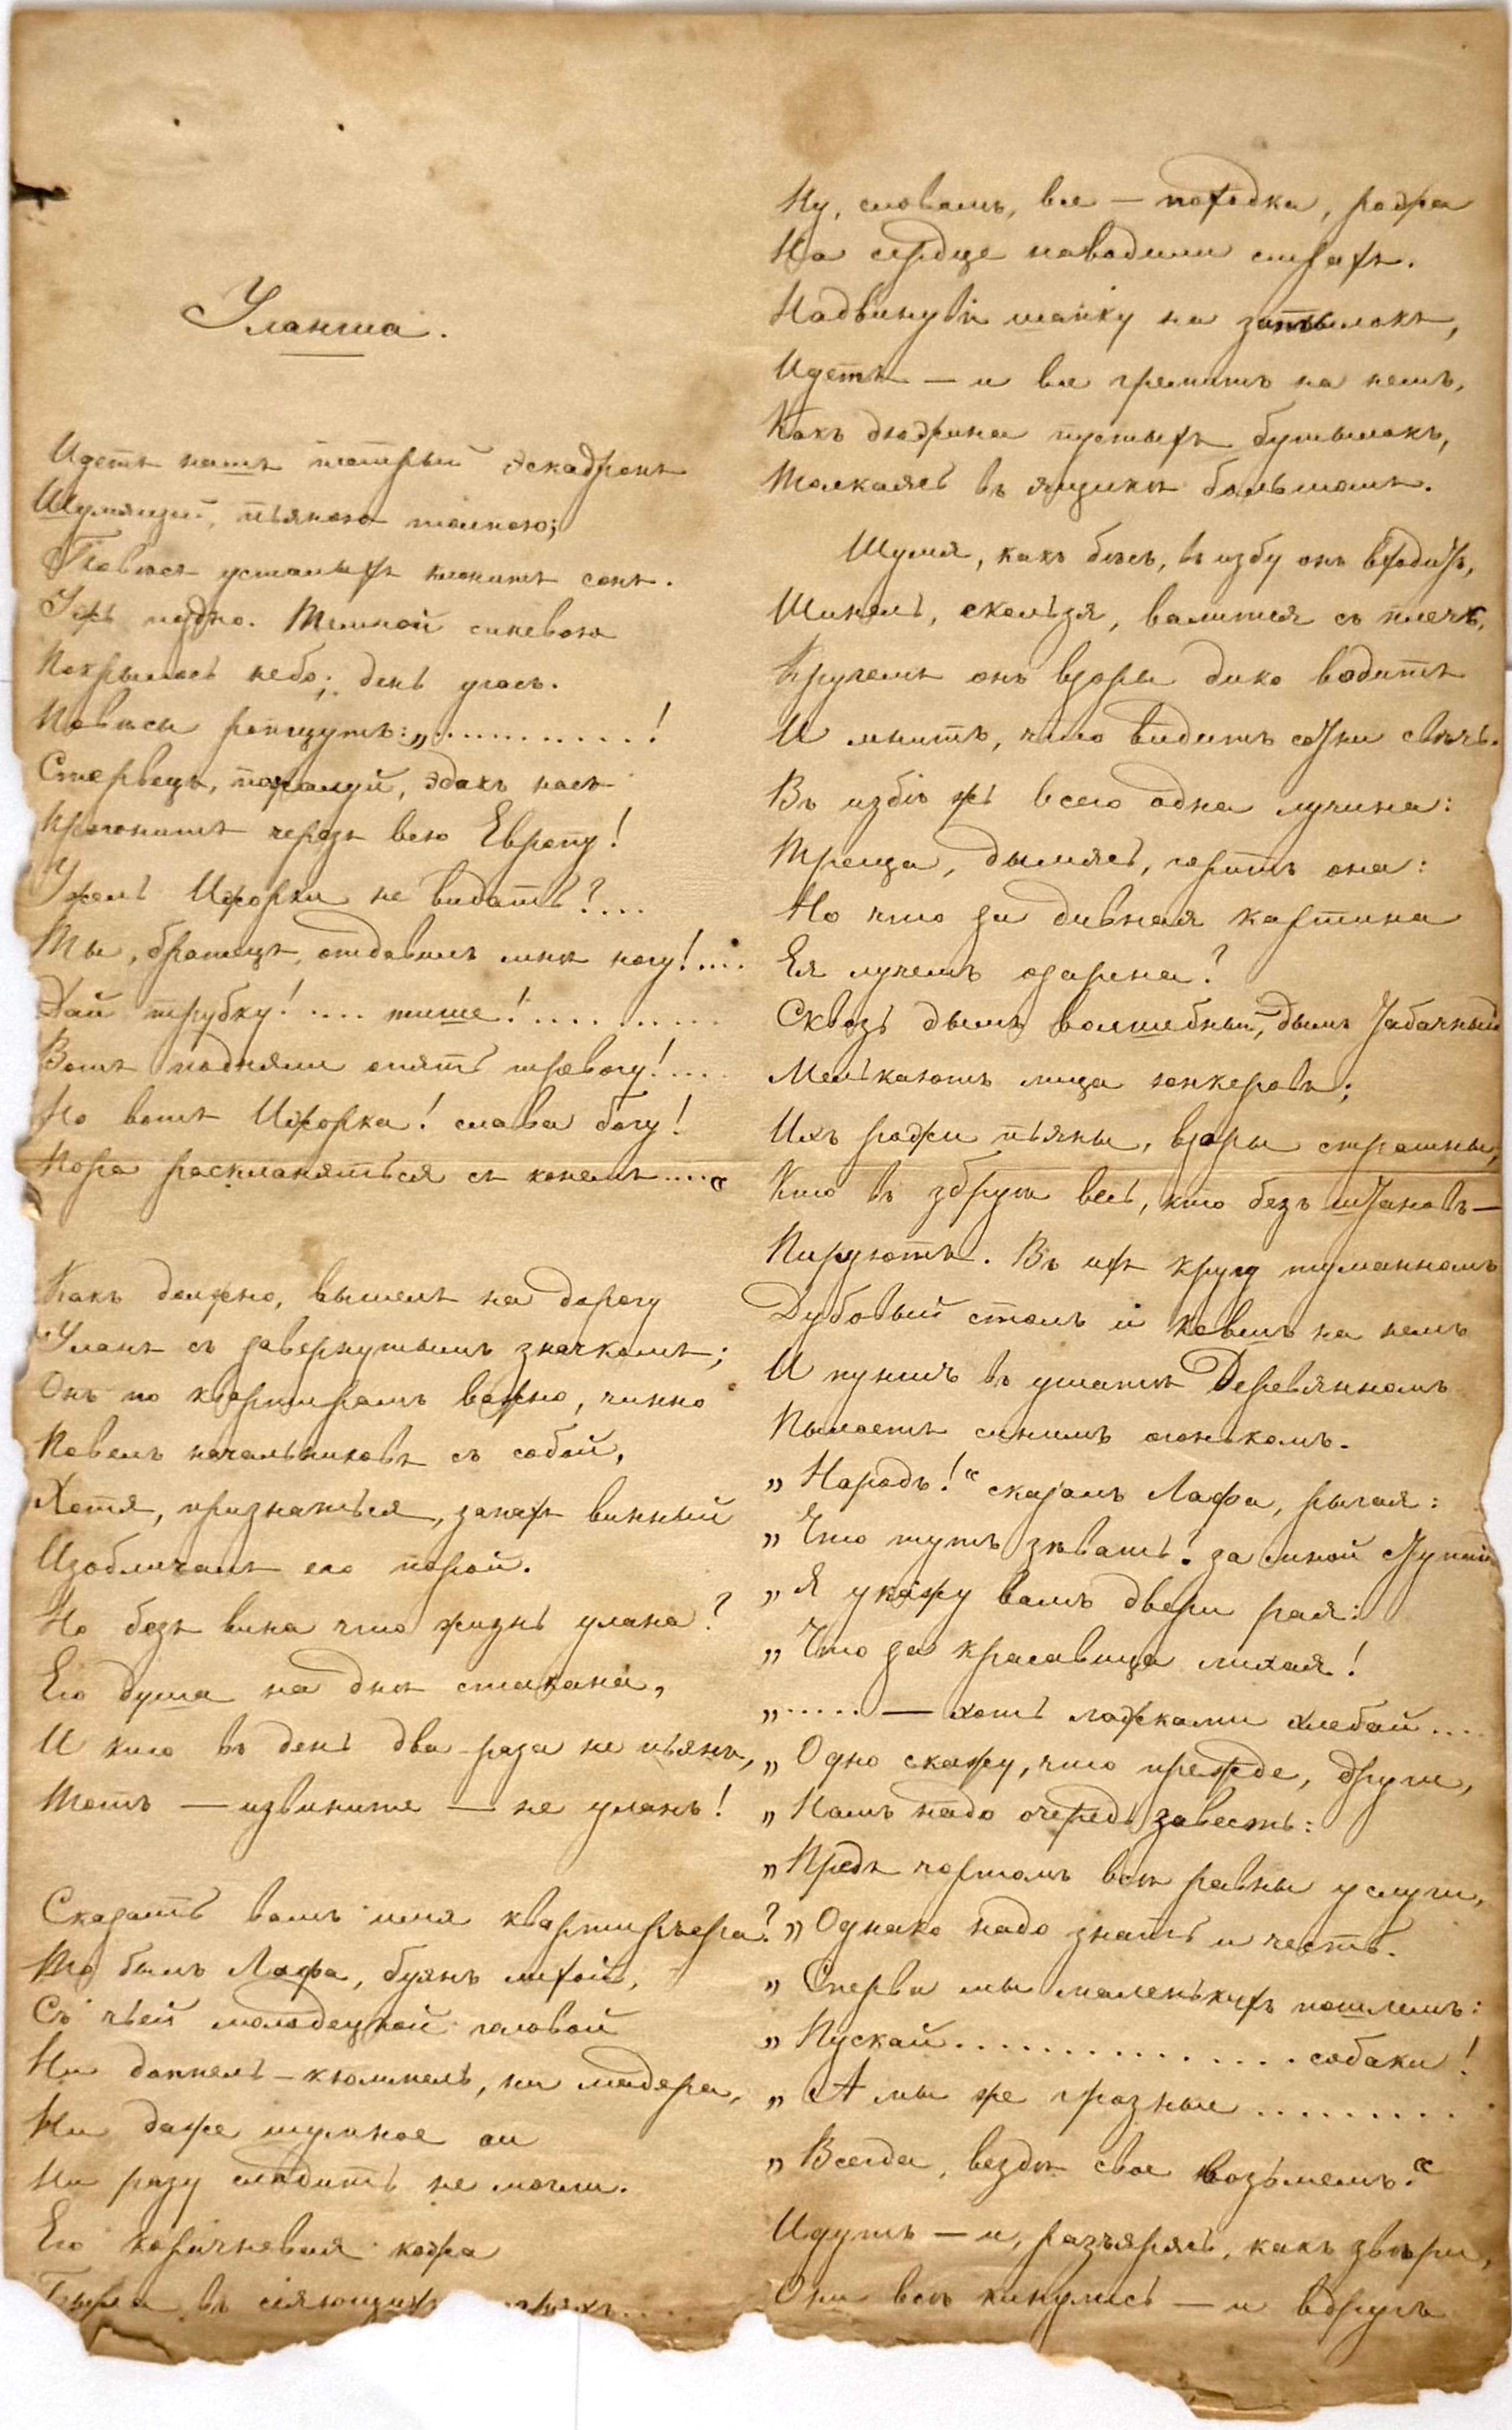 Уланша.
Идетъ нашъ пестрый эскадронъ
Шумящей, пьяною толпою;
Повѣсъ усталыхъ клонитъ сонъ.
Ужъ поздно. Темной синевою
Покрылось небо; день угасъ.
Повѣсы ропщутъ: „............!
Стервецъ, пожалуй, эдакъ насъ
Прогонитъ черезъ всю Европу!
Ужель Ижорки не видать?...
Ты, братецъ, отдавилъ мнѣ ногу!....
Дай трубку!.... тише!..........
Вотъ подняли опять тревогу!....
Но вотъ Ижорка! слава богу!
Пора раскланяться съ конемъ...."
Какъ должно, вышелъ на дорогу
Уланъ съ завернутымъ значкомъ;
Онъ по квартирамъ важно, чинно
Повелъ начальниковъ съ собой,
Хотя, признаться, запахъ винный
Изобличалъ его порой.
Но безъ вина что жизнь улана?
Его душа на днѣ стакана,
И кто въ день два раза не пьянъ,
Тотъ — извините — не уланъ!
Сказать вамъ имя квартирьера?
То былъ Лафа, буянъ лихой,
Съ чьей молодецкой головой
Ни доппель-кюммель, ни мадера,
Ни даже шумное аи
Ни разу сладить не могли.
Его коричневая кожа
Была въ сіяющихъ .....
Ну, словомъ, все — походка, рожа
На сердце наводили страхъ.
Надвинувъ шапку на затылокъ,
Идетъ — и все гремитъ на немъ,
Какъ дюжина пустыхъ бутылокъ,
Толкаясь въ ящикѣ большомъ.
Шумя, какъ бѣсъ, въ избу онъ входитъ,
Шинель, скользя, валится съ плечъ,
Кругомъ онъ взоры дико водитъ
И мнитъ, что видитъ сотни свѣчь.
Въ избѣ жъ всего одна лучина:
Треща, дымясь, горитъ она:
Но что за дивная картина
Ея лучемъ озарена?
Сквозь дымъ волшебный, дымъ табачный
Мелькаютъ лица юнкеровъ;
Ихъ рожи пьяны, взоры страшны,
Кто въ збруѣ весь, кто безъ штановъ —
Пируютъ. Въ ихъ кругу туманномъ
Дубовый столъ и ковшъ на немъ
И пуншъ въ ушатѣ Деревянномъ
Пылаетъ синимъ огонькомъ.
„Народъ!" сказалъ Лафа, рыгая:
„Что тутъ зѣвать! за мной ступай
„Я укажу вамъ двери рая:
„Что за красавица лихая!
„..... — хоть ложками хлебай....
„Одно скажу, что прежде, други,
„Намъ надо очередь завесть:
„Предъ чортомъ всѣ равны услуги,
„Однако надо знать и честь.
„Сперва мы маленькихъ пошлемъ:
„Пускай...............собаки!
„А мы же грозные.........
„Всегда, вездѣ свое возьмемъ."
Идутъ — и, разъярясь, какъ звѣри,
Они всѣ кинулись — и вдругъ